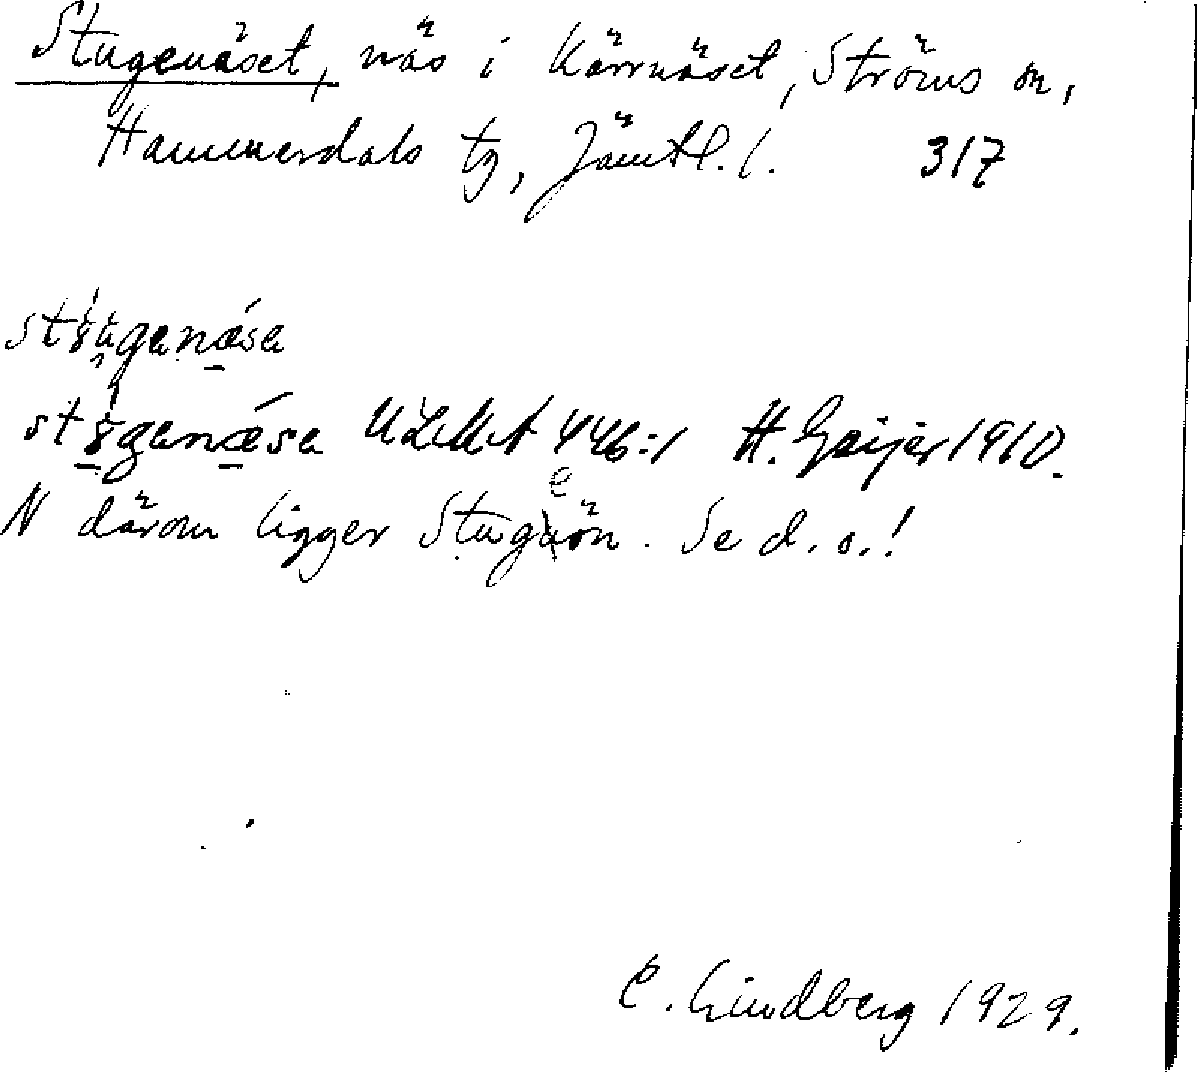 Stugenäset, näs i Kärrnäset, Ströms sn,
Hammerdals tg, Jämtl. l. 317
ULMA 446:1 H. Geijer 1910.
N därom ligger Stugeön. Se d. o.!
C. Lindberg 1929.